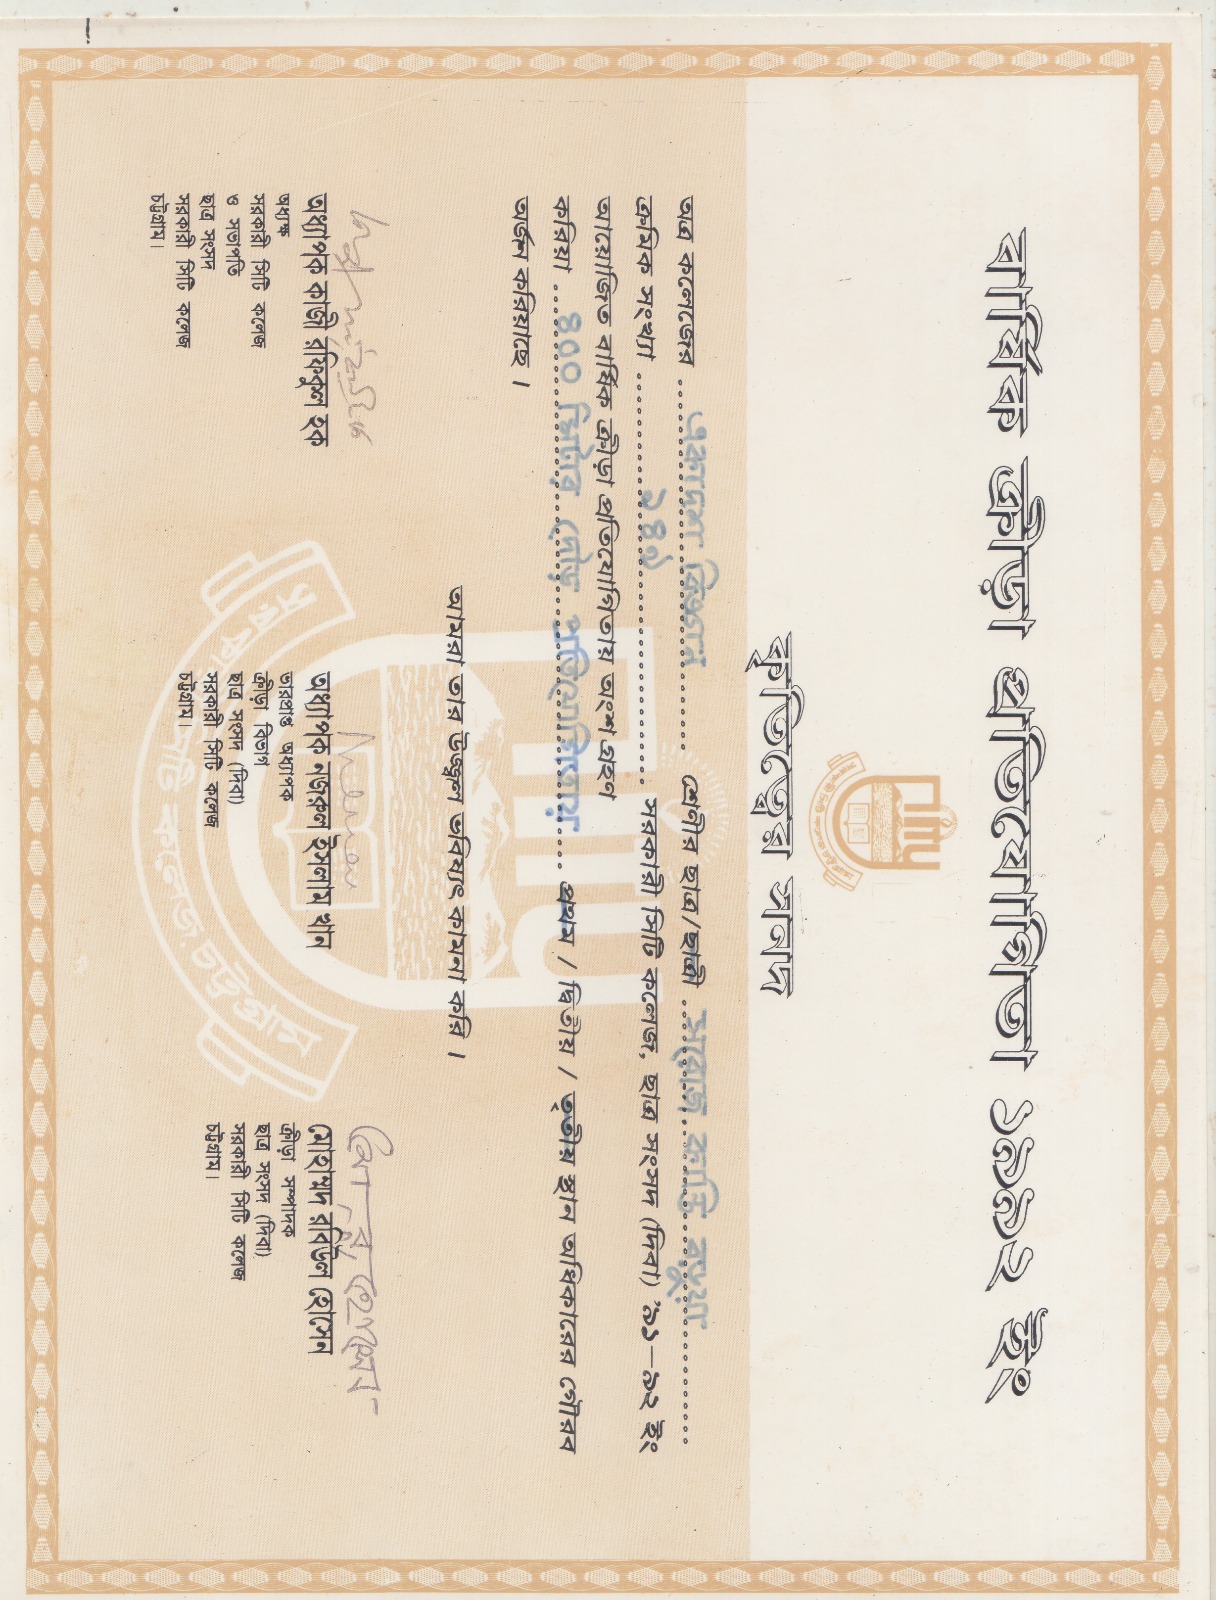 বার্ষিক ক্রীড়া প্রতিযোগিতা ১৯৯২ ইং
সরকারী সিটি কলেজ চট্টগ্রাম
কৃতিত্বের সনদ
অত্র কলেজের একাদশ বিজ্ঞান শ্রেণীর ছাত্র/ছাত্রী সরোজ কান্তি বড়ুয়া
ক্রমিক সংখ্যা ২৪১ সরকারী সিটি কলেজ, ছাত্র সংসদ (দিবা) '৯১—৯২ ইং
আয়োজিত বার্ষিক ক্রীড়া প্রতিযোগিতায় অংশ গ্রহণ
করিয়া ৪০০ মিটার দৌড় প্রতিযোগিতায় প্রথম / দ্বিতীয় / তৃতীয় স্থান অধিকারের গৌরব
অর্জন করিয়াছে।
আমরা তার উজ্জ্বল ভবিষ্যৎ কামনা করি।
মোঃ রবিউল হোসেন
অধ্যাপক কাজী রফিকুল হক
অধ্যক্ষ
সরকারী সিটি কলেজ
ও সভাপতি
ছাত্র সংসদ
সরকারী সিটি কলেজ
চট্টগ্রাম।
অধ্যাপক নজরুল ইসলাম খান
ভারপ্রাপ্ত অধ্যাপক
ক্রীড়া বিভাগ
ছাত্র সংসদ (দিবা)
সরকারী সিটি কলেজ
চট্টগ্রাম।
মোহাম্মদ রবিউল হোসেন
ক্রীড়া সম্পাদক
ছাত্র সংসদ (দিবা)
সরকারী সিটি কলেজ
চট্টগ্রাম।
সরকারী সিটি কলেজ চট্টগ্রাম